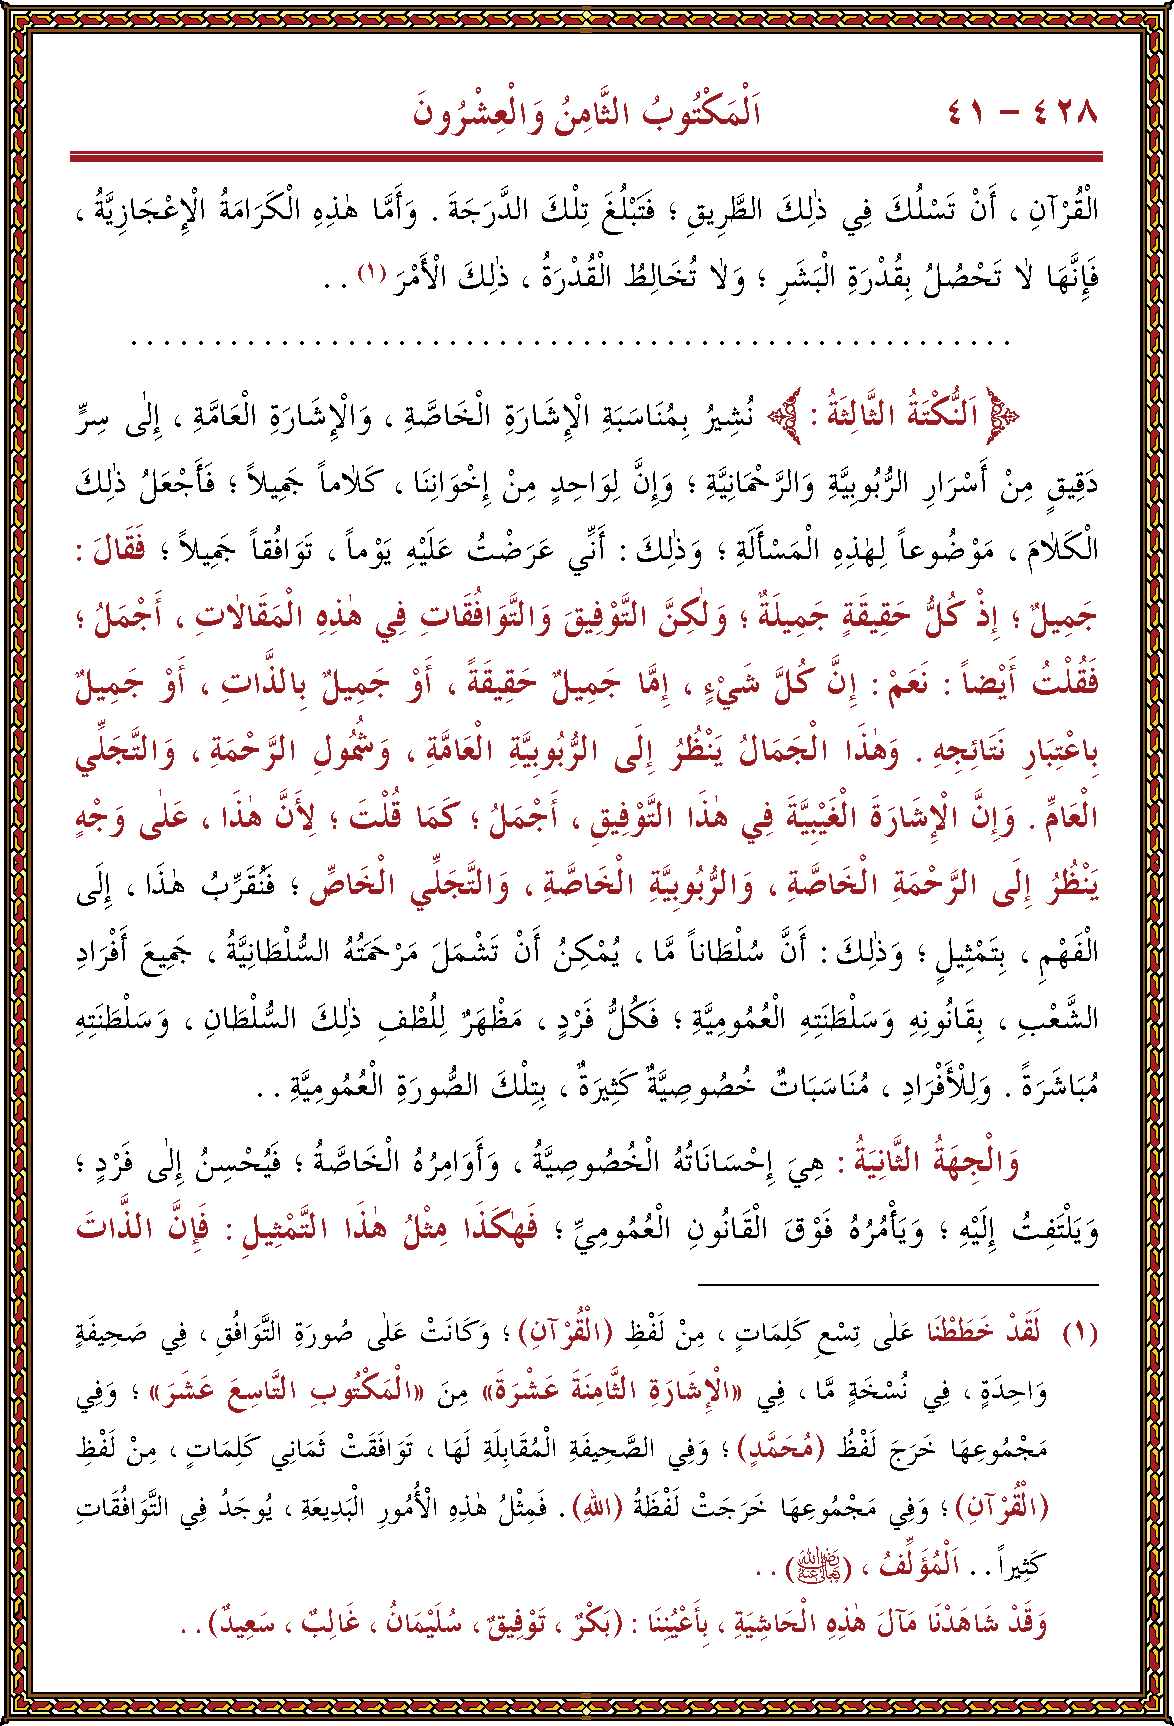 ٤٢٨ – ٤١ اَلْمَكْتُوبُ الثَّامِنُ وَالْعِشْرُونَ
الْقُرْآنِ ، أَنْ تَسْلُكَ فِي ذٰلِكَ الطَّرِيقِ ؛ فَتَبْلُغَ تِلْكَ الدَّرَجَةَ . وَأَمَّا هٰذِهِ الْكَرَامَةُ الْإِعْجَازِيَّةُ ،
فَإِنَّهَا لَا تَحْصُلُ بِقُدْرَةِ الْبَشَرِ ؛ وَلَا تُخَالِطُ الْقُدْرَةُ ، ذٰلِكَ الْأَمْرَ (١) . .
. . . . . . . . . . . . . . . . . . . . . . . . . . . . . . . . . . . . . . . . . . . . . . . . . . . . . .
﴿اَلنُّكْتَةُ الثَّالِثَةُ :﴾ نُشِيرُ بِمُنَاسَبَةِ الْإِشَارَةِ الْخَاصَّةِ ، وَالْإِشَارَةِ الْعَامَّةِ ، إِلٰى سِرٍّ
دَقِيقٍ مِنْ أَسْرَارِ الرُّبُوبِيَّةِ وَالرَّحْمَانِيَّةِ ؛ وَإِنَّ لِوَاحِدٍ مِنْ إِخْوَانِنَا ، كَلَاماً جَمِيلاً ؛ فَأَجْعَلُ ذٰلِكَ
الْكَلَامَ ، مَوْضُوعاً لِهٰذِهِ الْمَسْأَلَةِ ؛ وَذٰلِكَ : أَنِّي عَرَضْتُ عَلَيْهِ يَوْماً ، تَوَافُقاً جَمِيلاً ؛ فَقَالَ :
جَمِيلٌ ؛ إِذْ كُلُّ حَقِيقَةٍ جَمِيلَةٌ ؛ وَلٰكِنَّ التَّوْفِيقَ وَالتَّوَافُقَاتِ فِي هٰذِهِ الْمَقَالَاتِ ، أَجْمَلُ ؛
فَقُلْتُ أَيْضاً : نَعَمْ : إِنَّ كُلَّ شَيْءٍ ، إِمَّا جَمِيلٌ حَقِيقَةً ، أَوْ جَمِيلٌ بِالذَّاتِ ، أَوْ جَمِيلٌ
بِاعْتِبَارِ نَتَائِجِهِ . وَهٰذَا الْجَمَالُ يَنْظُرُ إِلَى الرُّبُوبِيَّةِ الْعَامَّةِ ، وَشُمُولِ الرَّحْمَةِ ، وَالتَّجَلِّي
الْعَامِّ . وَإِنَّ الْإِشَارَةَ الْغَيْبِيَّةَ فِي هٰذَا التَّوْفِيقِ ، أَجْمَلُ ؛ كَمَا قُلْتَ ؛ لِأَنَّ هٰذَا ، عَلٰى وَجْهٍ
يَنْظُرُ إِلَى الرَّحْمَةِ الْخَاصَّةِ ، وَالرُّبُوبِيَّةِ الْخَاصَّةِ ، وَالتَّجَلِّي الْخَاصِّ ؛ فَنُقَرِّبُ هٰذَا ، إِلَى
الْفَهْمِ ، بِتَمْثِيلٍ ؛ وَذٰلِكَ : أَنَّ سُلْطَاناً مَّا ، يُمْكِنُ أَنْ تَشْمَلَ مَرْحَمَتُهُ السُّلْطَانِيَّةُ ، جَمِيعَ أَفْرَادِ
الشَّعْبِ ، بِقَانُونِهِ وَسَلْطَنَتِهِ الْعُمُومِيَّةِ ؛ فَكُلُّ فَرْدٍ ، مَظْهَرٌ لِلُطْفِ ذٰلِكَ السُّلْطَانِ ، وَسَلْطَنَتِهِ
مُبَاشَرَةً . وَلِلْأَفْرَادِ ، مُنَاسَبَاتٌ خُصُوصِيَّةٌ كَثِيرَةٌ ، بِتِلْكَ الصُّورَةِ الْعُمُومِيَّةِ . .
وَالْجِهَةُ الثَّانِيَةُ : هِيَ إِحْسَانَاتُهُ الْخُصُوصِيَّةُ ، وَأَوَامِرُهُ الْخَاصَّةُ ؛ فَيُحْسِنُ إِلٰى فَرْدٍ ؛
وَيَلْتَفِتُ إِلَيْهِ ؛ وَيَأْمُرُهُ فَوْقَ الْقَانُونِ الْعُمُومِيِّ ؛ فَهٰكَذَا مِثْلُ هٰذَا التَّمْثِيلِ : فَإِنَّ الذَّاتَ
(١) لَقَدْ خَطَطْنَا عَلٰى تِسْعِ كَلِمَاتٍ ، مِنْ لَفْظِ (الْقُرْآنِ) ؛ وَكَانَتْ عَلٰى صُورَةِ التَّوَافُقِ ، فِي صَحِيفَةٍ
وَاحِدَةٍ ، فِي نُسْخَةٍ مَّا ، فِي «الْإِشَارَةِ الثَّامِنَةَ عَشْرَةَ» مِنَ «الْمَكْتُوبِ التَّاسِعَ عَشَرَ» ؛ وَفِي
مَجْمُوعِهَا خَرَجَ لَفْظُ (مُحَمَّدٍ) ؛ وَفِي الصَّحِيفَةِ الْمُقَابِلَةِ لَهَا ، تَوَافَقَتْ ثَمَانِي كَلِمَاتٍ ، مِنْ لَفْظِ
(الْقُرْآنِ) ؛ وَفِي مَجْمُوعِهَا خَرَجَتْ لَفْظَةُ (اللهِ) . فَمِثْلُ هٰذِهِ الْأُمُورِ الْبَدِيعَةِ ، يُوجَدُ فِي التَّوَافُقَاتِ
كَثِيراً . . اَلْمُؤَلِّفُ ، (رضي الله تعالى عنه) . .
وَقَدْ شَاهَدْنَا مَآلَ هٰذِهِ الْحَاشِيَةِ ، بِأَعْيُنِنَا : (بَكْرٌ ، تَوْفِيقٌ ، سُلَيْمَانُ ، غَالِبٌ ، سَعِيدٌ) . .